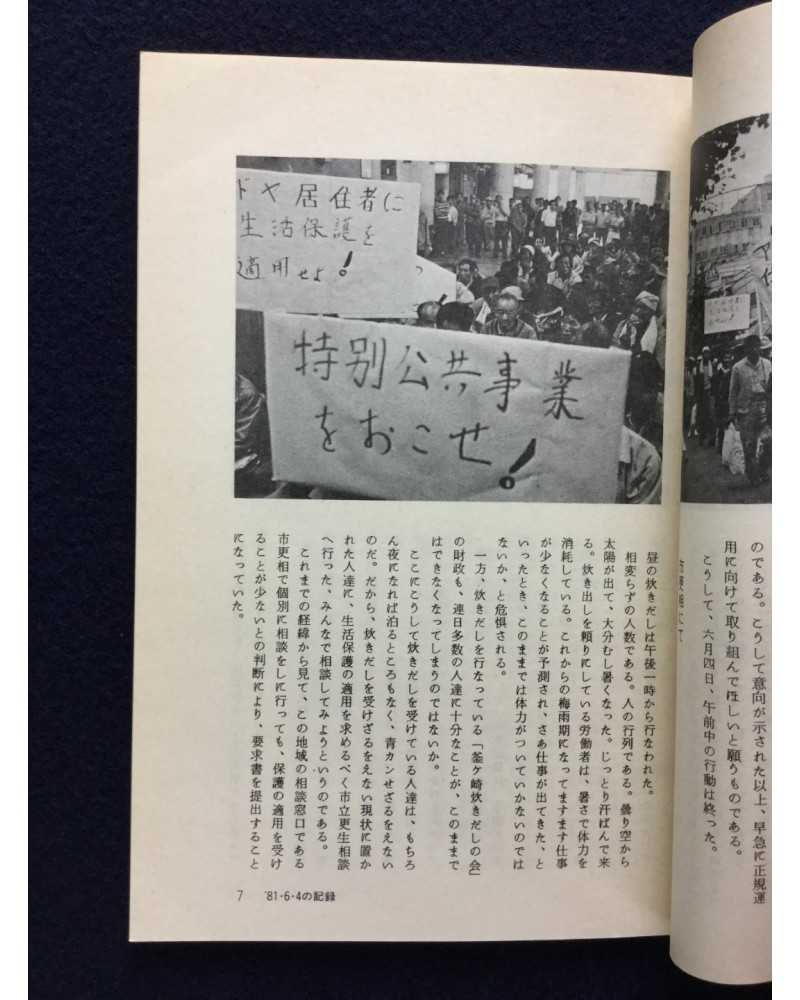 ドヤ居住者に
生活保護を
適用せよ！
特別公共事業
をおこせ！
のである。こうして意向が示された以上、早急に正規運
用に向けて取り組んでほしいと願うものである。
こうして、六月四日、午前中の行動は終った。
昼の炊きだしは午後一時から行なわれた。
相変らずの人数である。人の行列である。曇り空から
太陽が出て、大分むし暑くなった。じっとり汗ばんで来
る。炊き出しを頼りにしている労働者は、暑さで体力を
消耗している。これからの梅雨期になってますます仕事
が少なくなることが予測され、さあ仕事が出てきた、と
いったとき、このままでは体力がついていかないのでは
ないか、と危惧される。
一方、炊きだしを行なっている「釜ケ崎炊きだしの会」
の財政も、連日多数の人達に十分なことが、このままで
はできなくなってしまうのではないか。
ここにこうして炊きだしを受けている人達は、もちろ
ん夜になれば泊るところもなく、青カンせざるをえない
のだ。だから、炊きだしを受けざるをえない現状に置か
れた人達に、生活保護の適用を求めるべく市立更生相談
へ行った、みんなで相談してみようというのである。
これまでの経緯から見て、この地域の相談窓口である
市更相で個別に相談をしに行っても、保護の適用を受け
ることが少ないとの判断により、要求書を提出すること
になっていた。
7 '81・6・4の記録